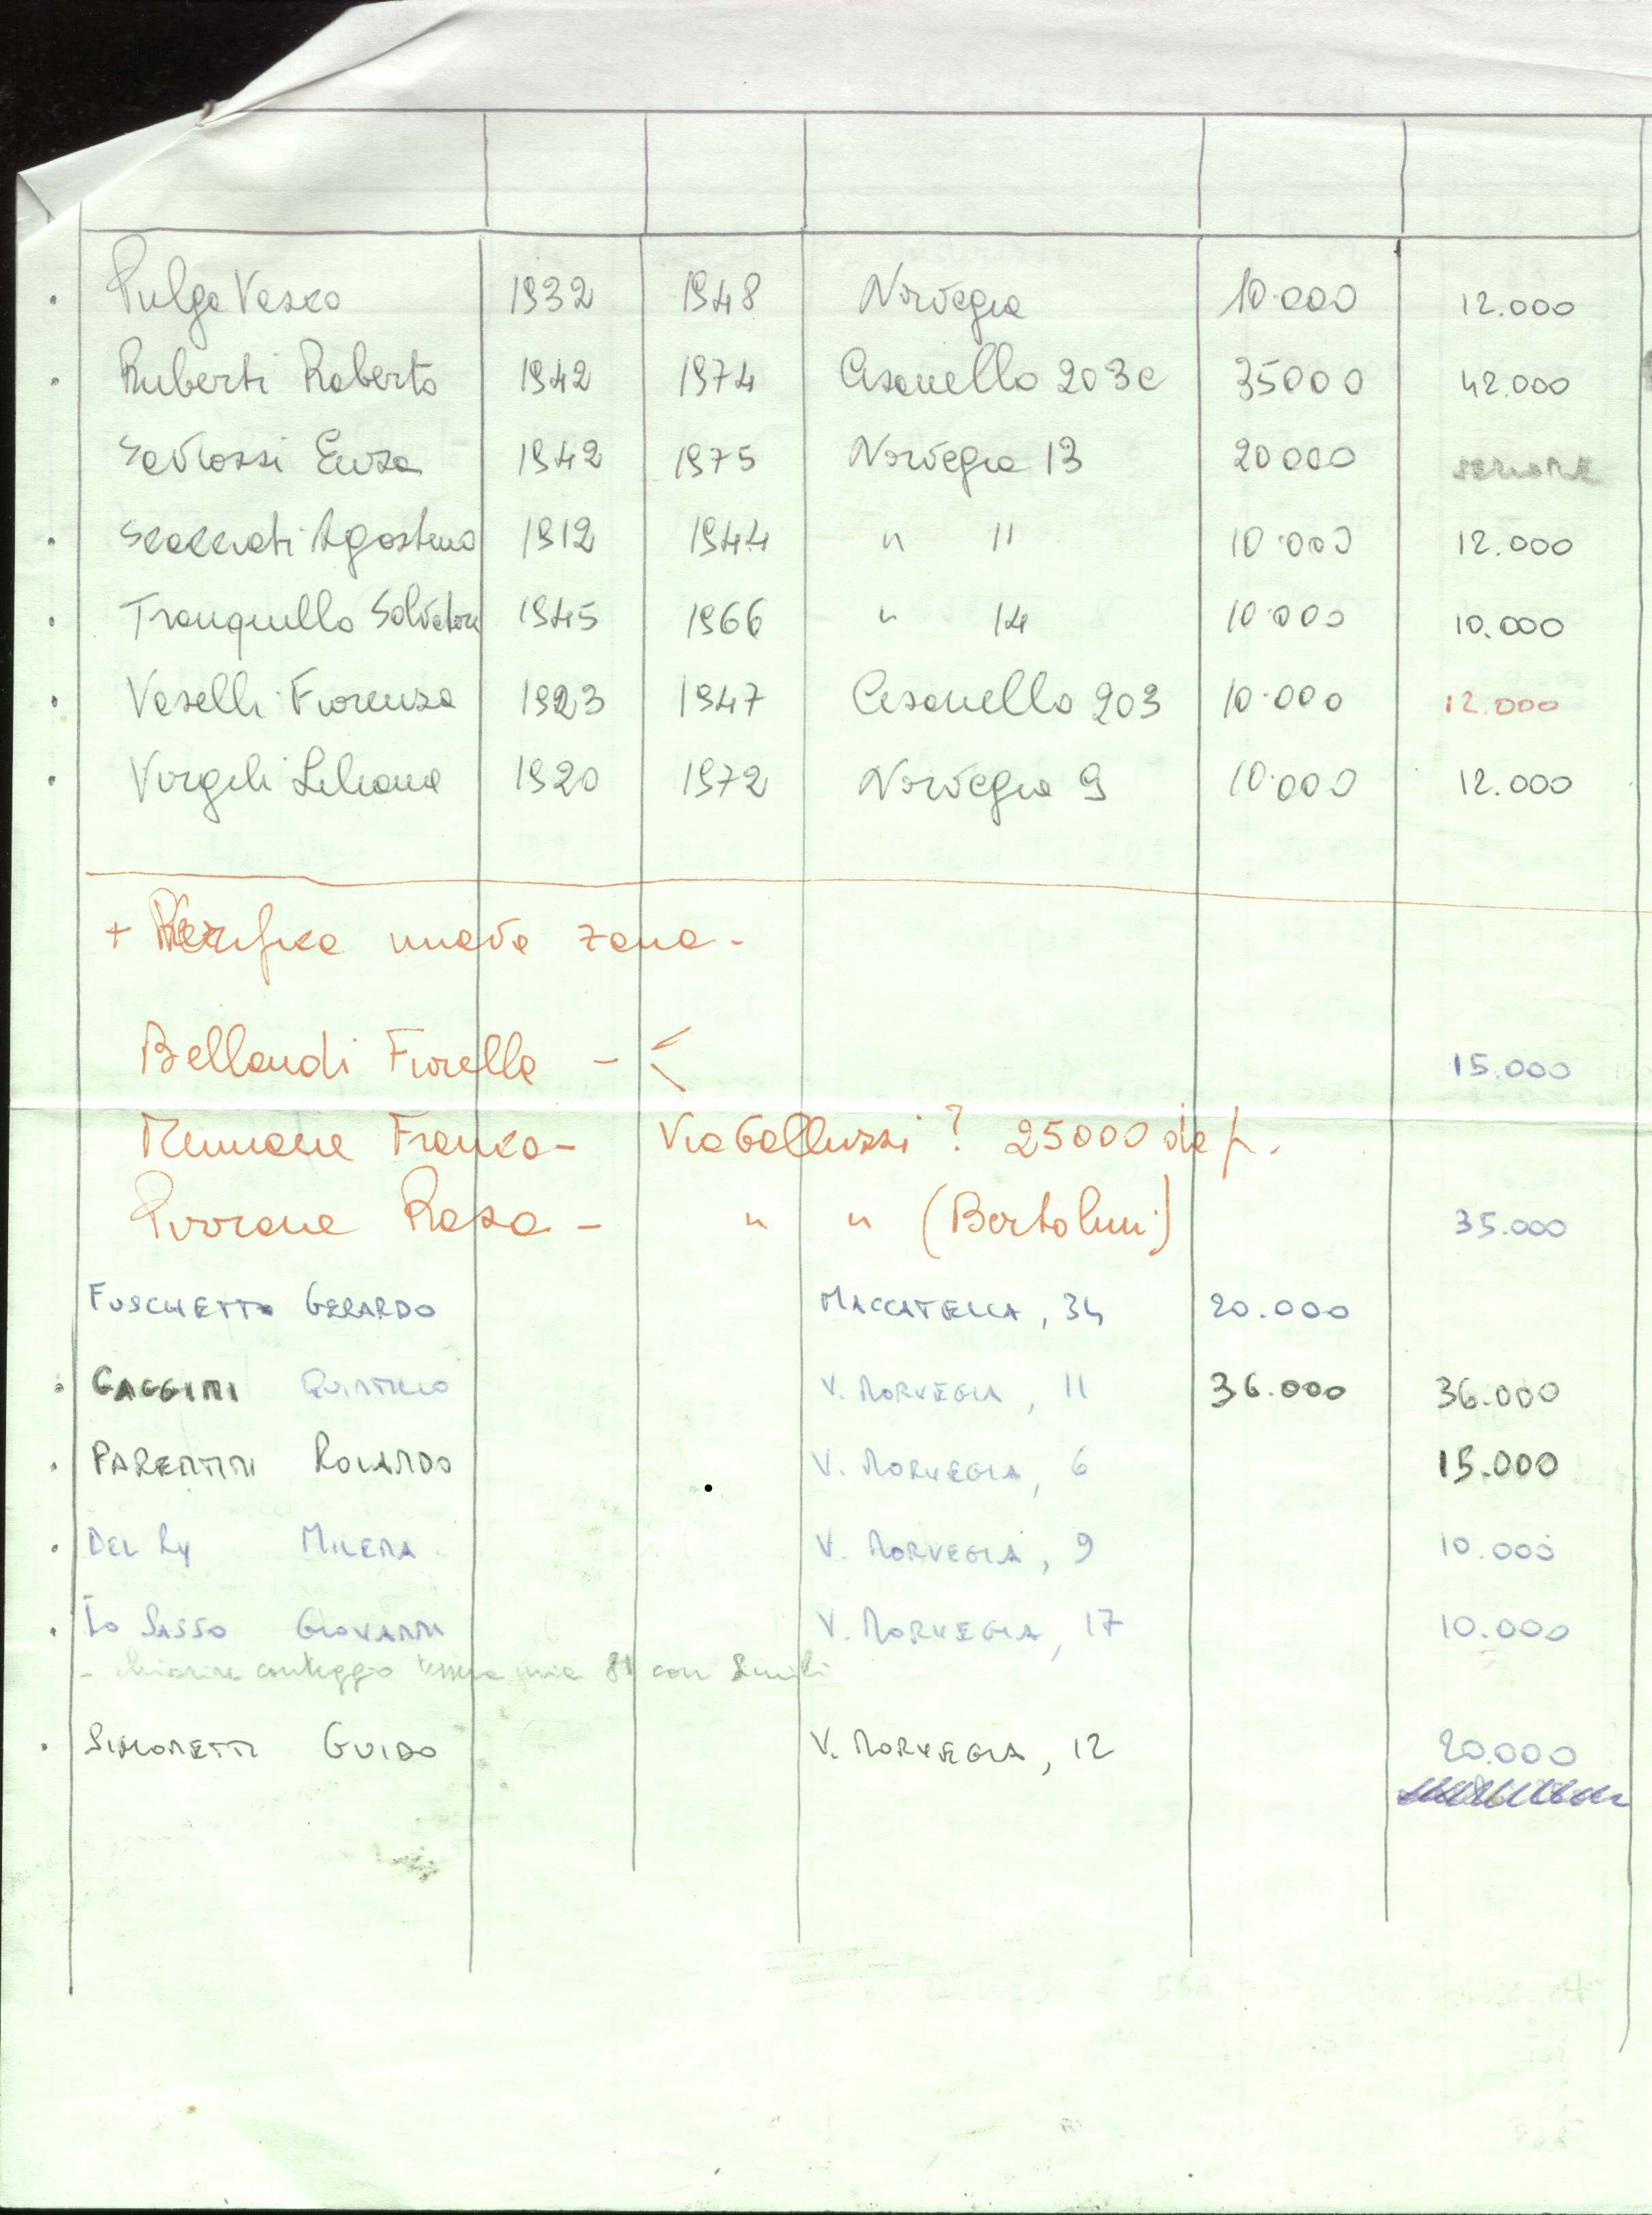 Pulga Vasco 1932 1948 Norvegia 10.000 12.000
Ruberti Roberto 1942 1974 Cisanello 203c 35000 42.000
Enza 1942 1975 Norvegia 13 20000
Scacciati Agostino 1912 1944 " 11 10.000 12.000
Tranquillo Salvatore 1945 1966 " 14 10.000 10.000
Vaselli Fiorenza 1923 1947 Cisanello 203 10.000 12.000
Virgili Liliana 1920 1972 Norvegia 9 10.000 12.000
+ Verifica nuova zona -
Bellandi Fiorella - 15.000
Franca - Via Galluzzi ? 25000 da p.
Pirrone Rosa - " " (Bertolini) 35.000
FUSCHETTO GERARDO MACCATELLA, 34 20.000
GAGGINI QUINTILIO V. NORVEGIA, 11 36.000 36.000
PARENTINI ROLANDO V. NORVEGIA, 6 15.000
DEL RY MILENA V. NORVEGIA, 9 10.000
LO SASSO GIOVANNI V. NORVEGIA, 17 10.000
- chiarire conteggio tessera mia 81 con
SIMONETTI GUIDO V. NORVEGIA, 12 20.000